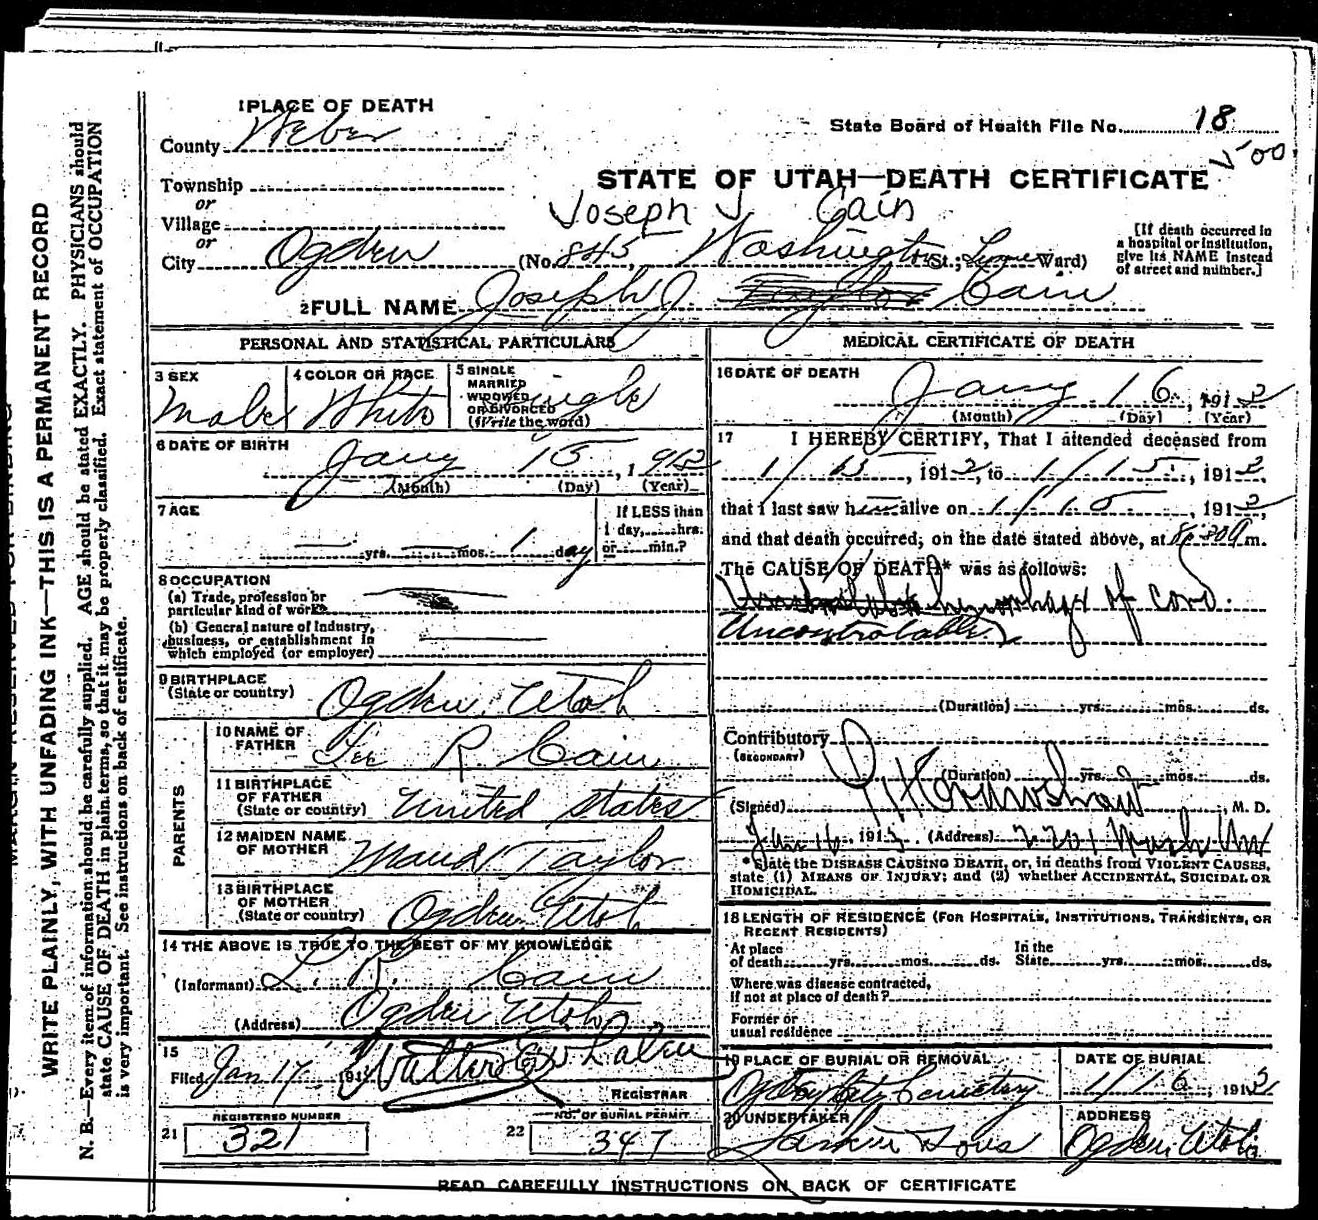 1 PLACE OF DEATH
County Weber
State Board of Health File No. 18
Township
or
Village
or
City Ogden
STATE OF UTAH—DEATH CERTIFICATE
Joseph J Cain
(No. 845, Washington St.; Ward)
[If death occurred in
a hospital or institution,
give its NAME instead
of street and number.]
2 FULL NAME Joseph J. Taylor Cain
PERSONAL AND STATISTICAL PARTICULARS
3 SEX
Male
4 COLOR OR RACE
White
5 SINGLE
MARRIED
WIDOWED
OR DIVORCED
(Write the word)
Single
6 DATE OF BIRTH
Jany 15, 1912
(Month) (Day) (Year)
7 AGE
— yrs. — mos. 1 day
If LESS than
1 day, hrs.
or min.?
8 OCCUPATION
(a) Trade, profession or
particular kind of work
(b) General nature of industry,
business, or establishment in
which employed (or employer)
9 BIRTHPLACE
(State or country)
Ogden Utah
PARENTS
10 NAME OF
FATHER
Lee R Cain
11 BIRTHPLACE
OF FATHER
(State or country)
United States
12 MAIDEN NAME
OF MOTHER
Maud Taylor
13 BIRTHPLACE
OF MOTHER
(State or country)
Ogden Utah
14 THE ABOVE IS TRUE TO THE BEST OF MY KNOWLEDGE
(Informant) L. R. Cain
(Address) Ogden Utah
15
Filed Jan 17, 191
REGISTRAR
REGISTERED NUMBER
21 321
NO. OF BURIAL PERMIT
22 347
MEDICAL CERTIFICATE OF DEATH
16 DATE OF DEATH
Jany 16, 1912
(Month) (Day) (Year)
17 I HEREBY CERTIFY, That I attended deceased from
1/15, 1912, to 1/15, 1912,
that I last saw him alive on 1/15, 1912,
and that death occurred, on the date stated above, at 8:30 a m.
The CAUSE OF DEATH* was as follows:
hemorhage of cord.
Uncontrolable
(Duration) yrs. mos. ds.
Contributory
(SECONDARY)
(Duration) yrs. mos. ds.
(Signed) M. D.
Jan 16, 191 (Address) 2201 Wash Ave
*State the DISEASE CAUSING DEATH, or, in deaths from VIOLENT CAUSES,
state (1) MEANS OF INJURY; and (2) whether ACCIDENTAL, SUICIDAL OR
HOMICIDAL.
18 LENGTH OF RESIDENCE (FOR HOSPITALS, INSTITUTIONS, TRANSIENTS, OR
RECENT RESIDENTS)
At place
of death yrs. mos. ds.
In the
State yrs. mos. ds.
Where was disease contracted,
if not at place of death?
Former or
usual residence
19 PLACE OF BURIAL OR REMOVAL
Ogden City Cemetery
DATE OF BURIAL
1/16, 1912
20 UNDERTAKER
Larkin Sons
ADDRESS
Ogden Utah
READ CAREFULLY INSTRUCTIONS ON BACK OF CERTIFICATE
WRITE PLAINLY, WITH UNFADING INK—THIS IS A PERMANENT RECORD
N. B.—Every item of information should be carefully supplied. AGE should be stated EXACTLY. PHYSICIANS should
state CAUSE OF DEATH in plain terms, so that it may be properly classified. Exact statement of OCCUPATION
is very important. See instructions on back of certificate.